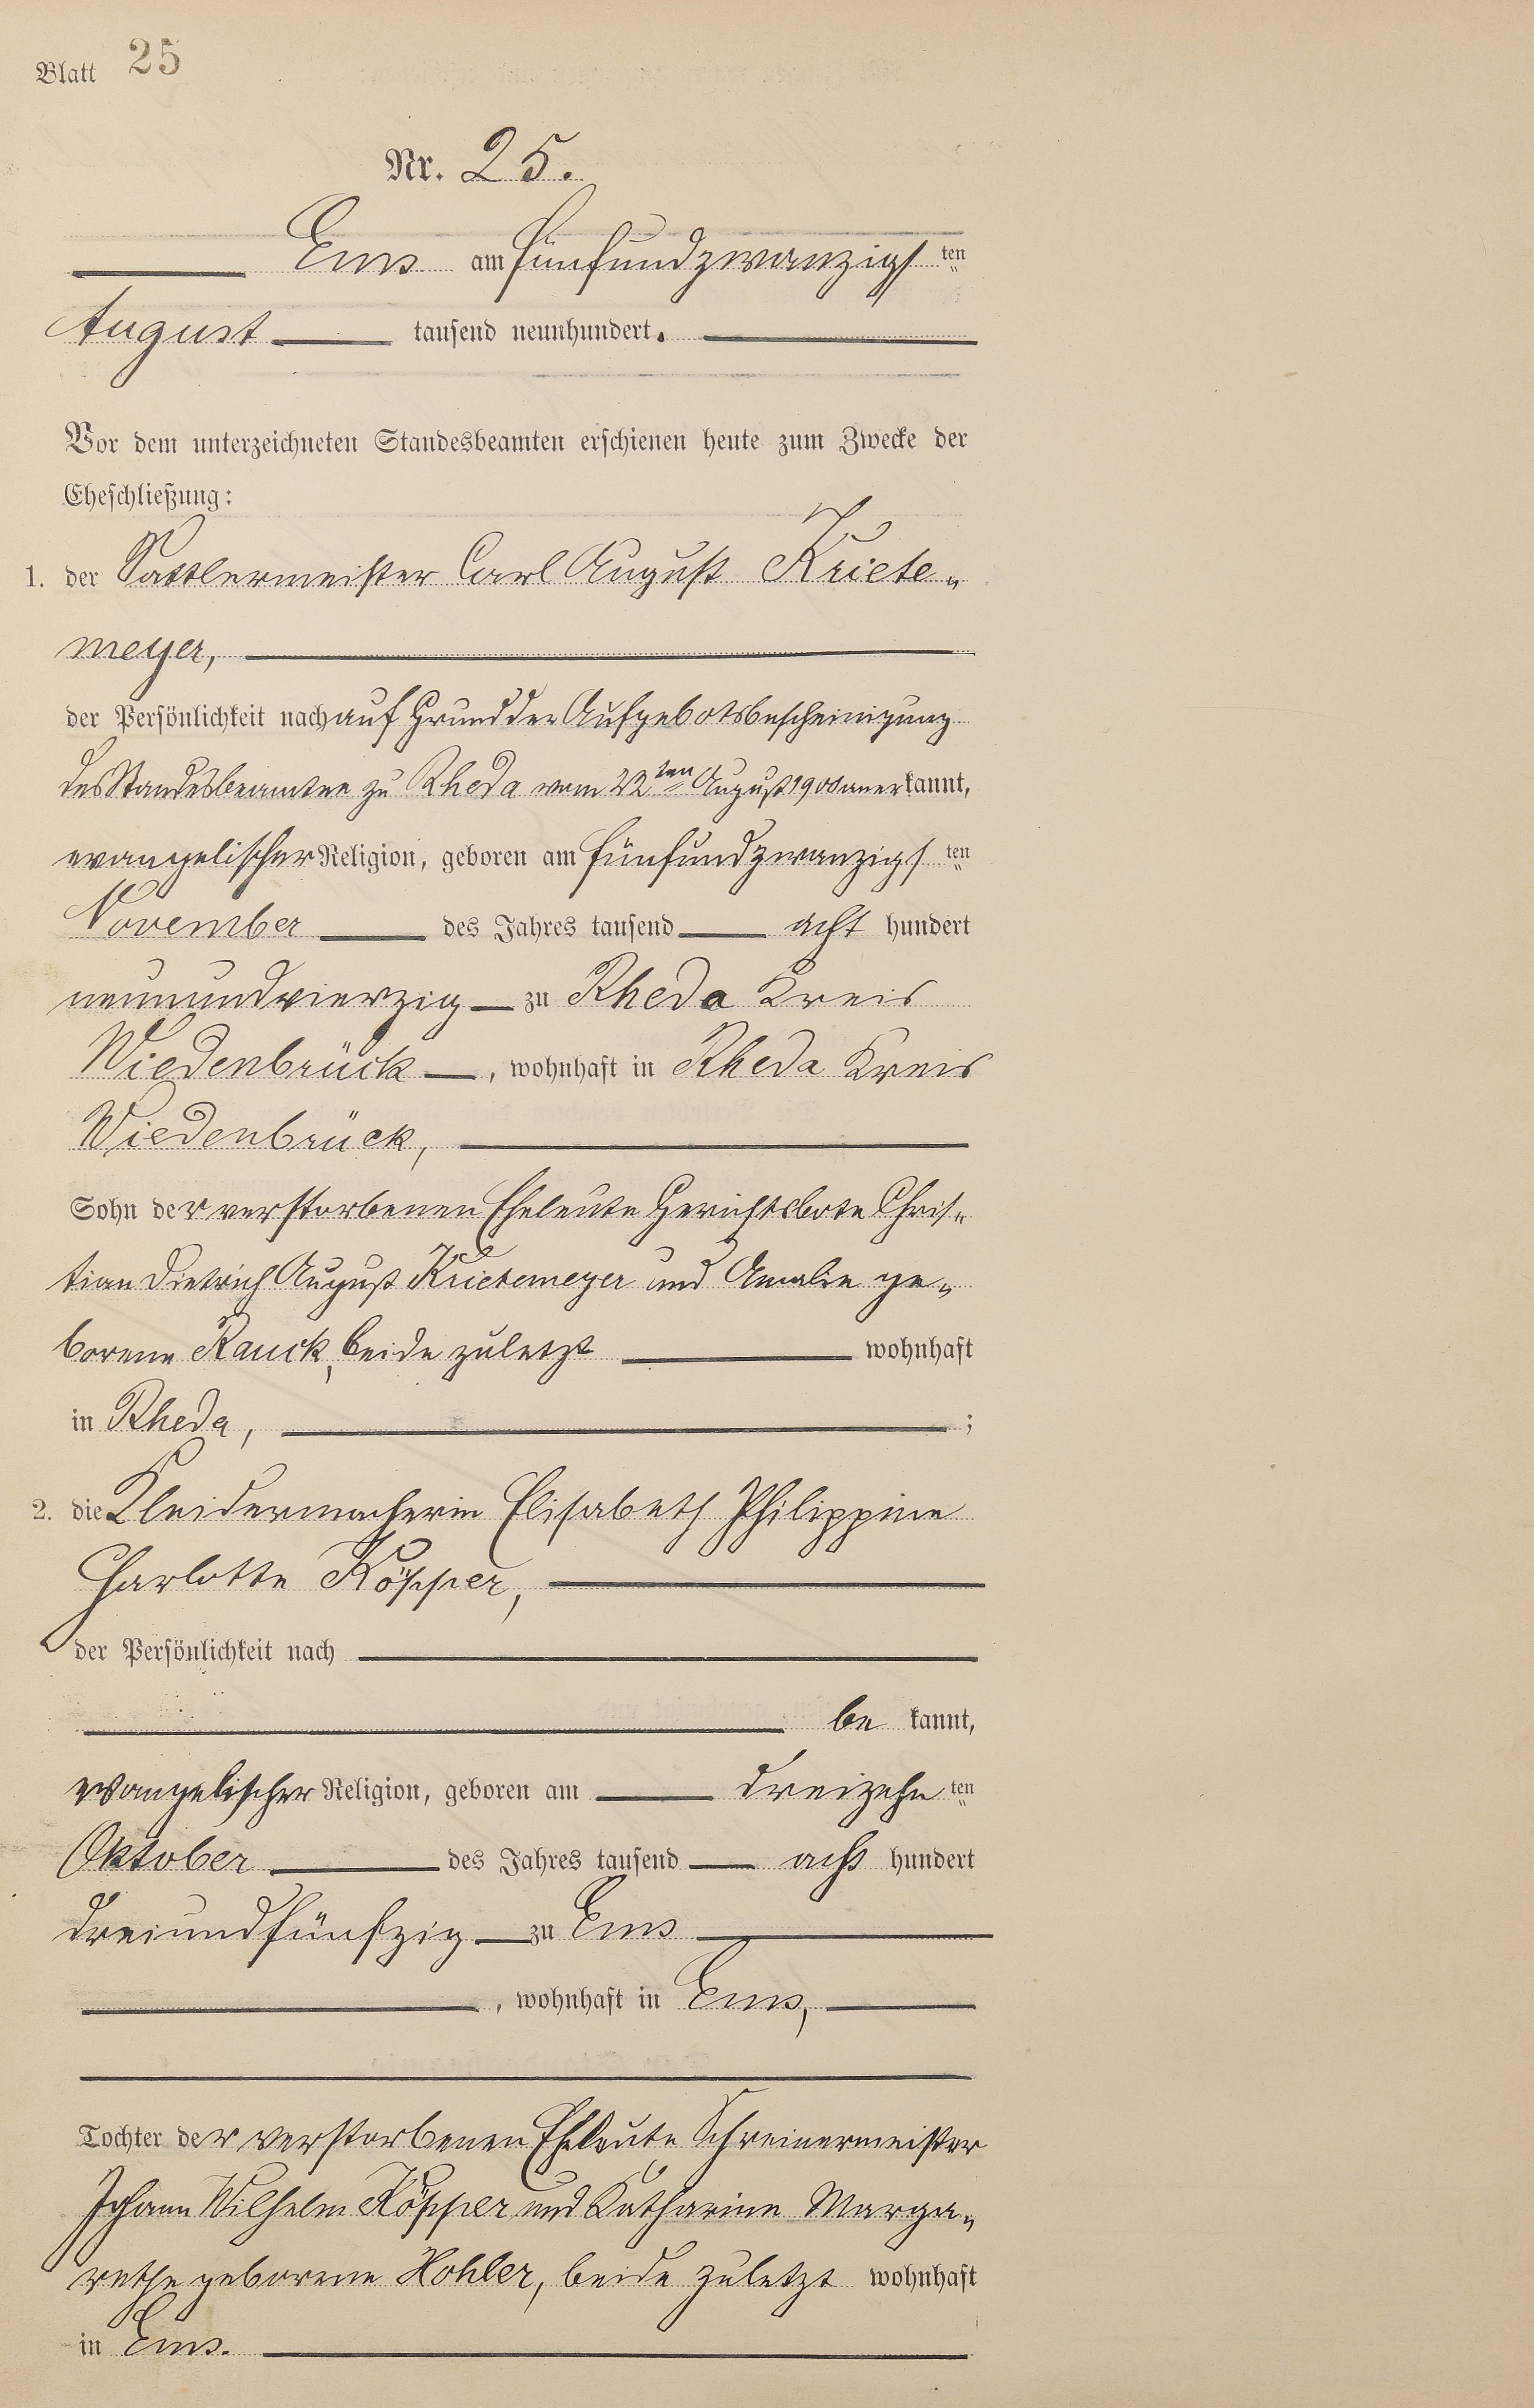 Blatt 25
Nr. 25.
Ems am fünfundzwanzigs ten
August tausend neunhundert.
Vor dem unterzeichneten Standesbeamten erschienen heute zum Zwecke der
Eheschließung:
1. der Sattlermeister Carl August Kriete-
meyer,
der Persönlichkeit nach auf Grund der Aufgebotsbescheinigung
des Standesbeamten zu Rheda vom 22ten August 1900 anerkannt,
evangelischer Religion, geboren am fünfundzwanzigs ten
November des Jahres tausend acht hundert
neunundvierzig zu Rheda Kreis
Wiedenbrück, wohnhaft in Rheda Kreis
Wiedenbrück,
Sohn der verstorbenen Eheleute Gerichtsbote Chris-
tian Dietrich August Krietemeyer und Amalie ge-
borene Rauck, beide zuletzt wohnhaft
in Rheda, ;
2. die Kleidermacherin Elisabeth Philippine
Charlotte Köpper,
der Persönlichkeit nach
be kannt,
evangelischer Religion, geboren am dreizehn ten
Oktober des Jahres tausend acht hundert
dreiundfünfzig zu Ems
, wohnhaft in Ems,
Tochter der verstorbenen Eheleute Schreinermeister
Johann Wilhelm Köpper und Katharine Marga-
rethe geborene Hohler, beide zuletzt wohnhaft
in Ems.